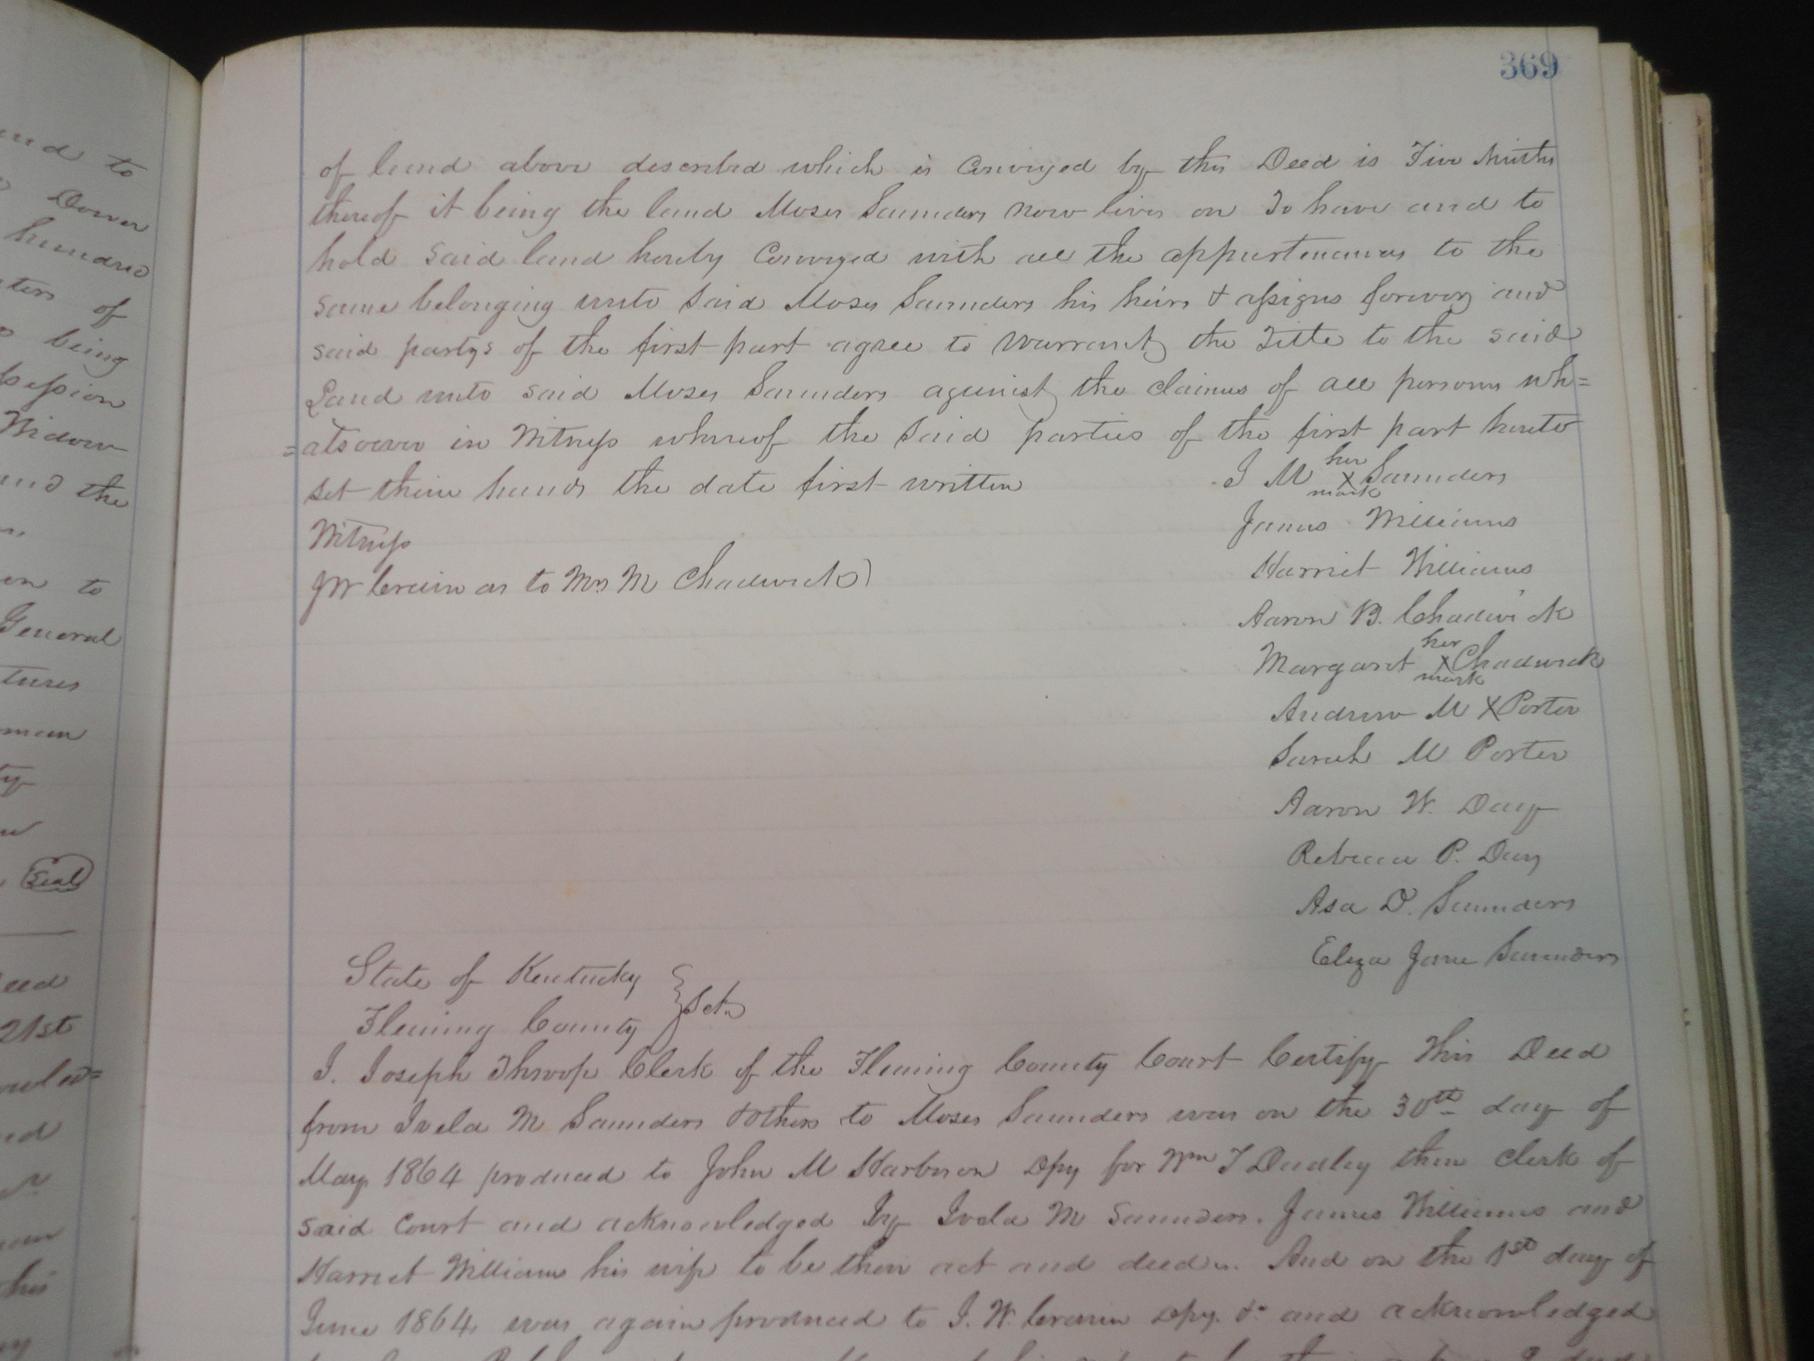 369
of land above described which is Conveyed by this Deed is Five Ninths
thereof it being the land Moses Saunders now lives on To have and to
hold said land hereby Conveyed with all the appurtenances to the
same belonging unto Said Moses Saunders his heirs & assigns forever and
said partys of the first part agree to Warrant the Title to the said
Land unto said Moses Saunders against the claims of all persons wh=
=atsoever in Witness whereof the Said parties of the first part hereto
set their hands the date first written
I M her X mark Saunders
James Williams
Witness
Harriet Williams
J W Crain as to Mrs M Chadwick
Aaron B. Chadwick
Margaret her X mark Chadwick
Andrew M X Porter
Sarah M Porter
Aaron W. Day
Rebecca P. Day
Asa D. Saunders
Eliza Jane Saunders
State of Kentucky
Fleming County } Sct.
I. Joseph Throop Clerk of the Fleming County Court Certify This Deed
from Ivela M Saunders & others to Moses Saunders was on the 30th day of
May 1864 produced to John M Harbeson Dpy for Wm T Dudley then Clerk of
said Court and acknowledged by Ivela M Saunders. James Williams and
Harriet Williams his wife to be their act and deed. And on the 1st day of
June 1864 was again produced to I. W. Crain Dpy. &c and acknowledged
and to
Dower
hundred
of
being
Widow
and the
to
General
Seal
21st
his